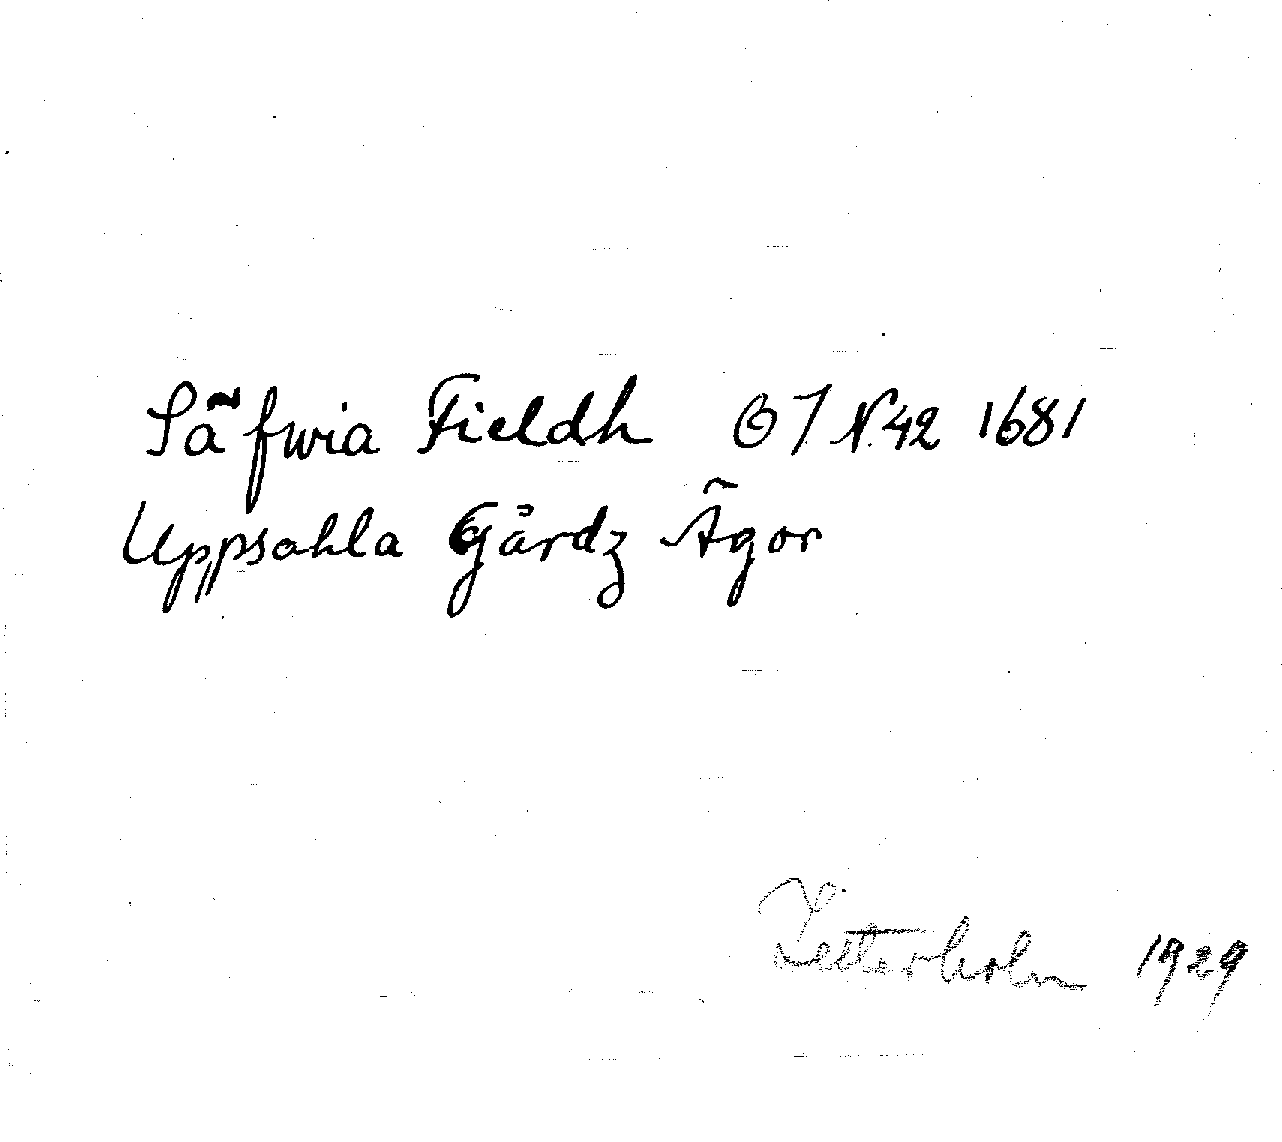 Säfwia Fieldh Ⓞ 7 N. 42 1681
Uppsahla Gårdz Ägor
Zetterholm 1929